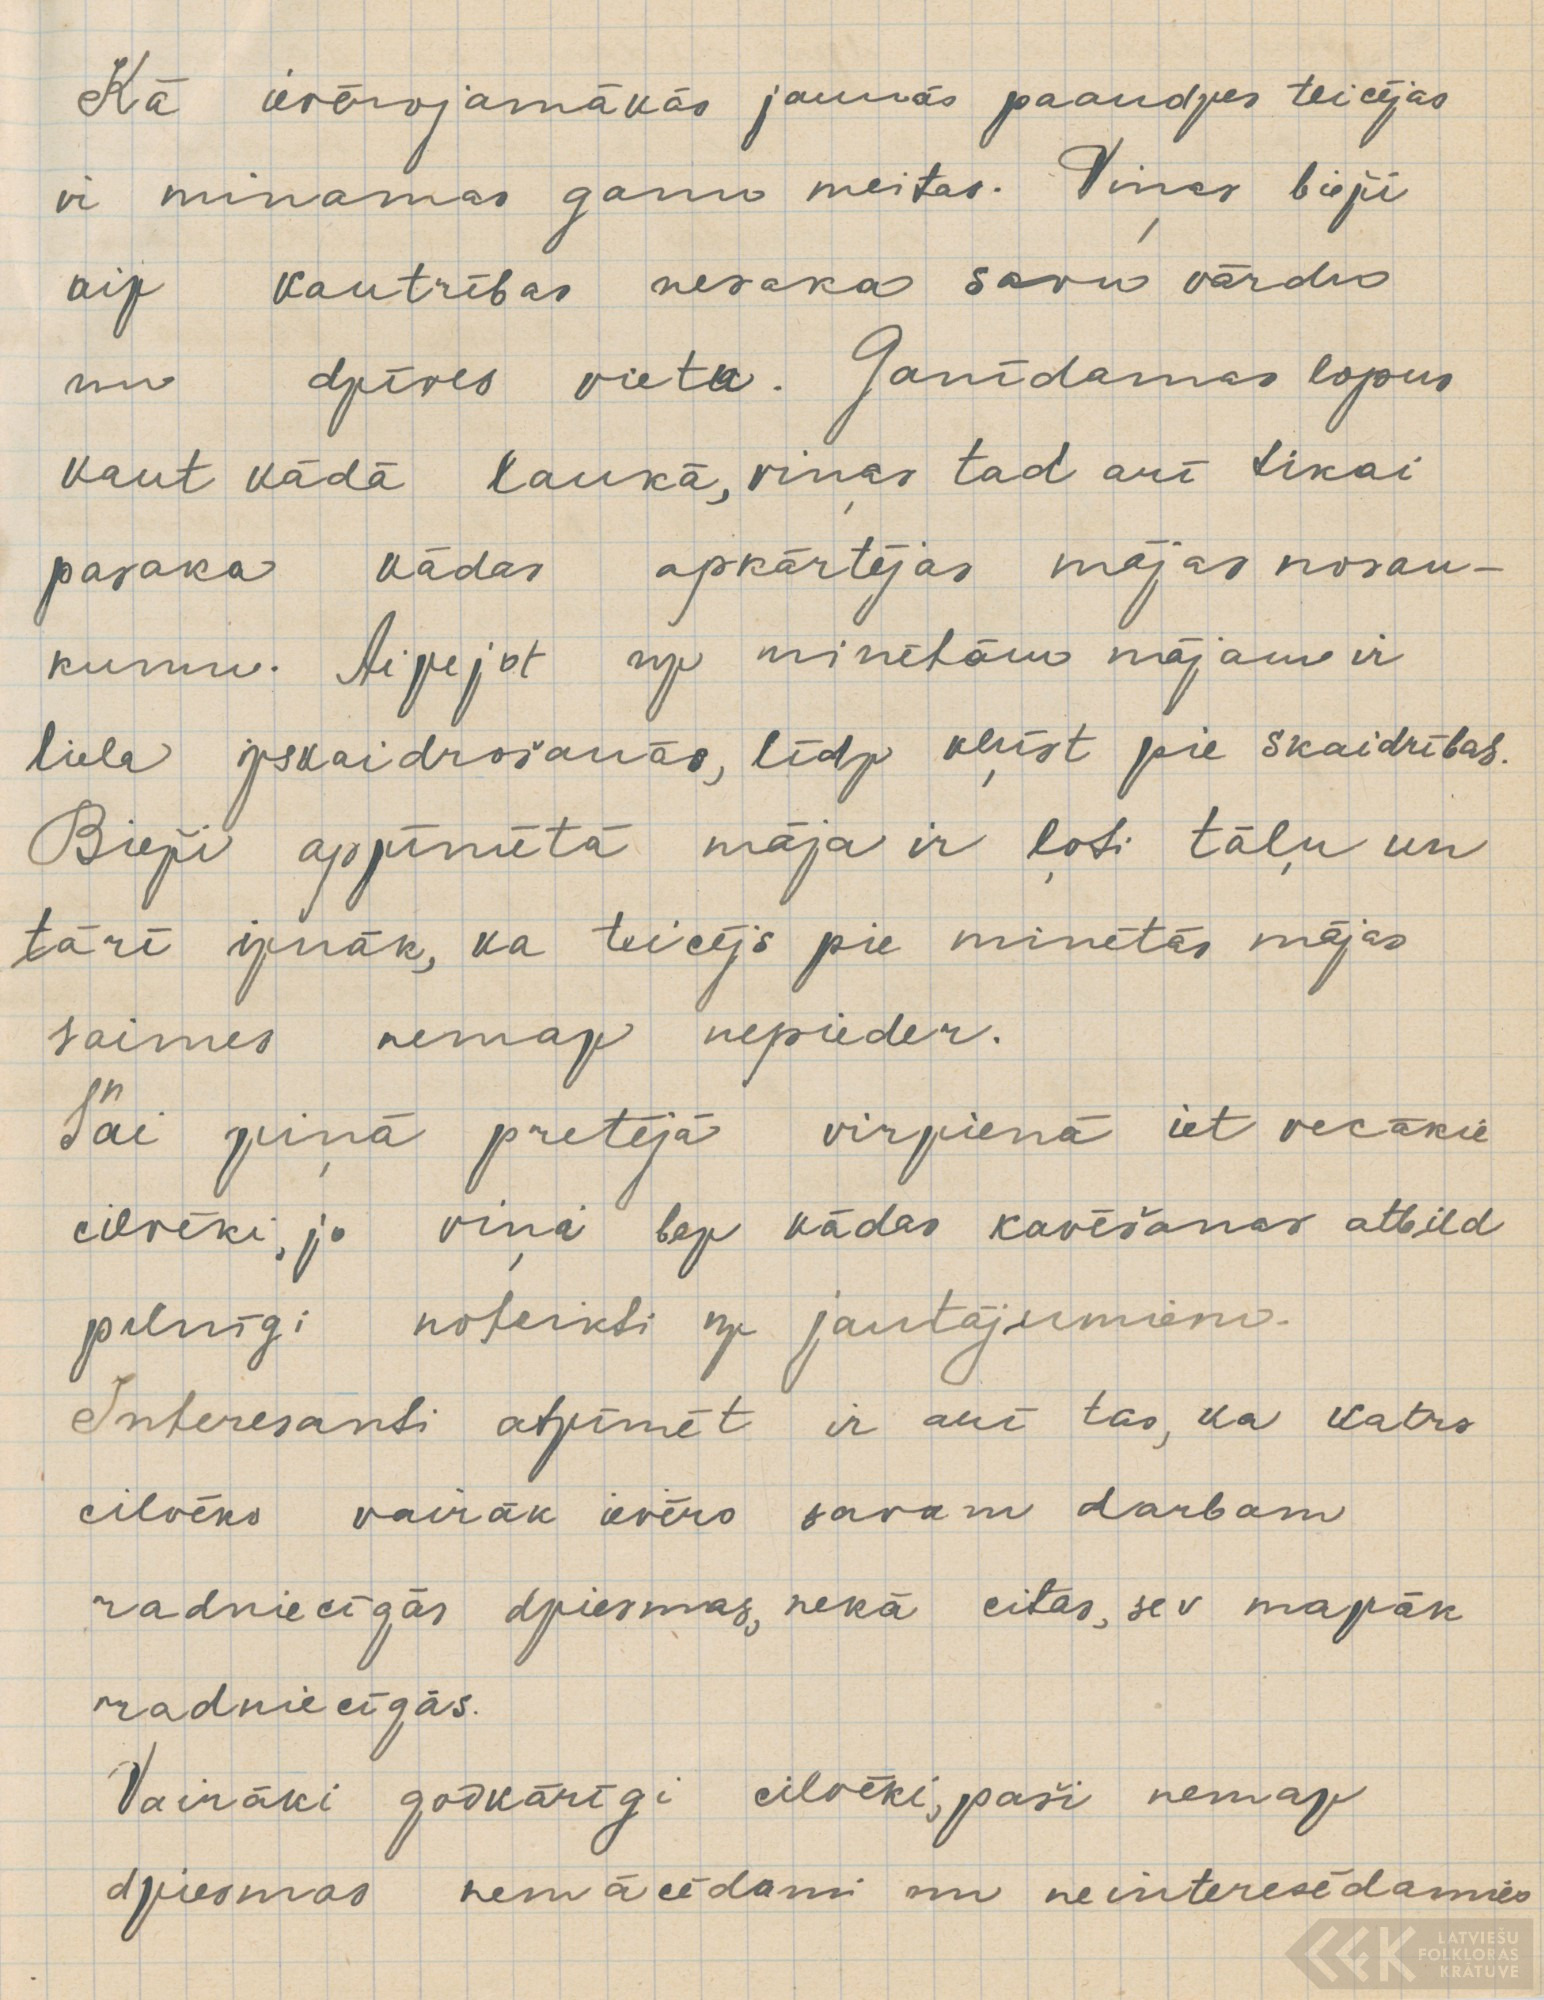 Kā ievērojamākās jaunās paaudzes teicējas
ir minamas ganu meitas. Viņas bieži
aiz kautrības nesaka savu vārdu
un dzīves vietu. Ganīdamas lopus
kaut kādā laukā, viņas tad arī tikai
pasaka kādas apkārtējas mājas nosau-
kumu. Aizejot uz minētām mājam ir
liela izskaidrošanās, līdz kļūst pie skaidrības.
Bieži apzīmētā māja ir ļoti tāļu un
tārī iznāk, ka teicējs pie minētās mājas
saimes nemaz nepieder.
Šai ziņā pretējā virzienā iet vecākie
cilvēki, jo viņi bez kādas kavēšanas atbild
pilnīgi noteikti uz jautājumiem.
Interesanti atzīmēt ir arī tas, ka katrs
cilvēks vairāk ievēro savam darbam
radniecīgās dziesmas, nekā citas, sev mazāk
radniecīgās.
Vairāki godkārīgi cilvēki, paši nemaz
dziesmas nemācēdami un neinteresēdamies
LATVIEŠU
FOLKLORAS
KRĀTUVE